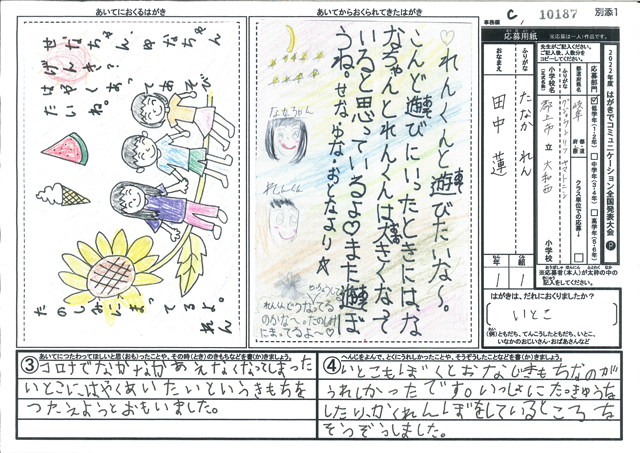 C 10187
事務局
別添1
あいてにおくるはがき
せなちゃん、ゆなちゃん
げんき?
はやくあってあそび
たいね。
たのしみにまってるよ。
れん
あいてからおくられてきたはがき
♡れんくんと遊びたいな〜。
こんど遊びにいったときにはな
なちゃんとれんくんは大きくなって
いると思っているよ♡また遊ぼ
うね。せな、ゆな、おとなより☆
ななちゃん
れんくん
れんくんどうなってる
のかな〜。たのしみ
にまってるよ〜♡
応募用紙
※応募は一人一作品です。
2021年度 はがきでコミュニケーション全国発表大会
先生がご記入ください。
応募部門
低学年(1・2年)
中学年(3・4年)
高学年(5・6年)
クラス単位での応募
都道府県名
岐阜
都 道 府 県
小学校名
ふりがな
郡上市 立 大和西
小学校
おなまえ
ふりがな
たなか れん
田中 蓮
1 年
1 組
※応募者(本人)が太枠の中の
記入をしてください。
はがきは、だれにおくりましたか?
いとこ
(例)ともだち、てんこうしたともだち、いとこ、
いなかのおじいさん・おばあさんなど
③あいてにつたわってほしいと思(おも)ったことや、その時(とき)のきもちなどを書(か)きましょう。
コロナでなかなかあえなくなってしまった
いとこにはやくあいたいというきもちを
つたえようとおもいました。
④へんじをよんで、とくにうれしかったことや、そうぞうしたことなどを書(か)きましょう。
いとこもぼくとおなじきもちなのが
うれしかったです。いっしょにたっきゅうを
したり、かくれんぼをしているところを
そうぞうしました。